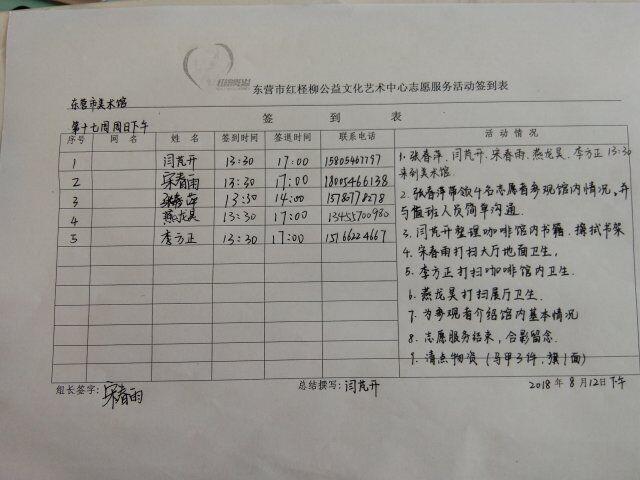 东营市红柽柳公益文化艺术中心志愿服务活动签到表
东营市美术馆
第十七周周日下午
签 到 表
序号 网 名 姓 名 签到时间 签退时间 联系电话 活 动 情 况
1 闫芃开 13:30 17:00
2 宋春雨 13:30 17:00 18005466138
3 张春萍 13:30 14:00
4 燕龙昊 13:30 17:00 13455700980
5 李方正 13:30 17:00 15166224667
1. 张春萍、闫芃开、宋春雨、燕龙昊、李方正 13:30
来到美术馆
2. 张春萍带领4名志愿者参观馆内情况,并
与值班人员简单沟通.
3. 闫芃开整理咖啡馆内书籍.擦拭书架
4. 宋春雨打扫大厅地面卫生.
5. 李方正打扫咖啡馆内卫生.
6. 燕龙昊打扫展厅卫生.
7. 为参观者介绍馆内基本情况
8. 志愿服务结束,合影留念.
9. 清点物资(马甲3件,旗1面)
组长签字: 宋春雨 总结撰写: 闫芃开 2018年8月12日下午